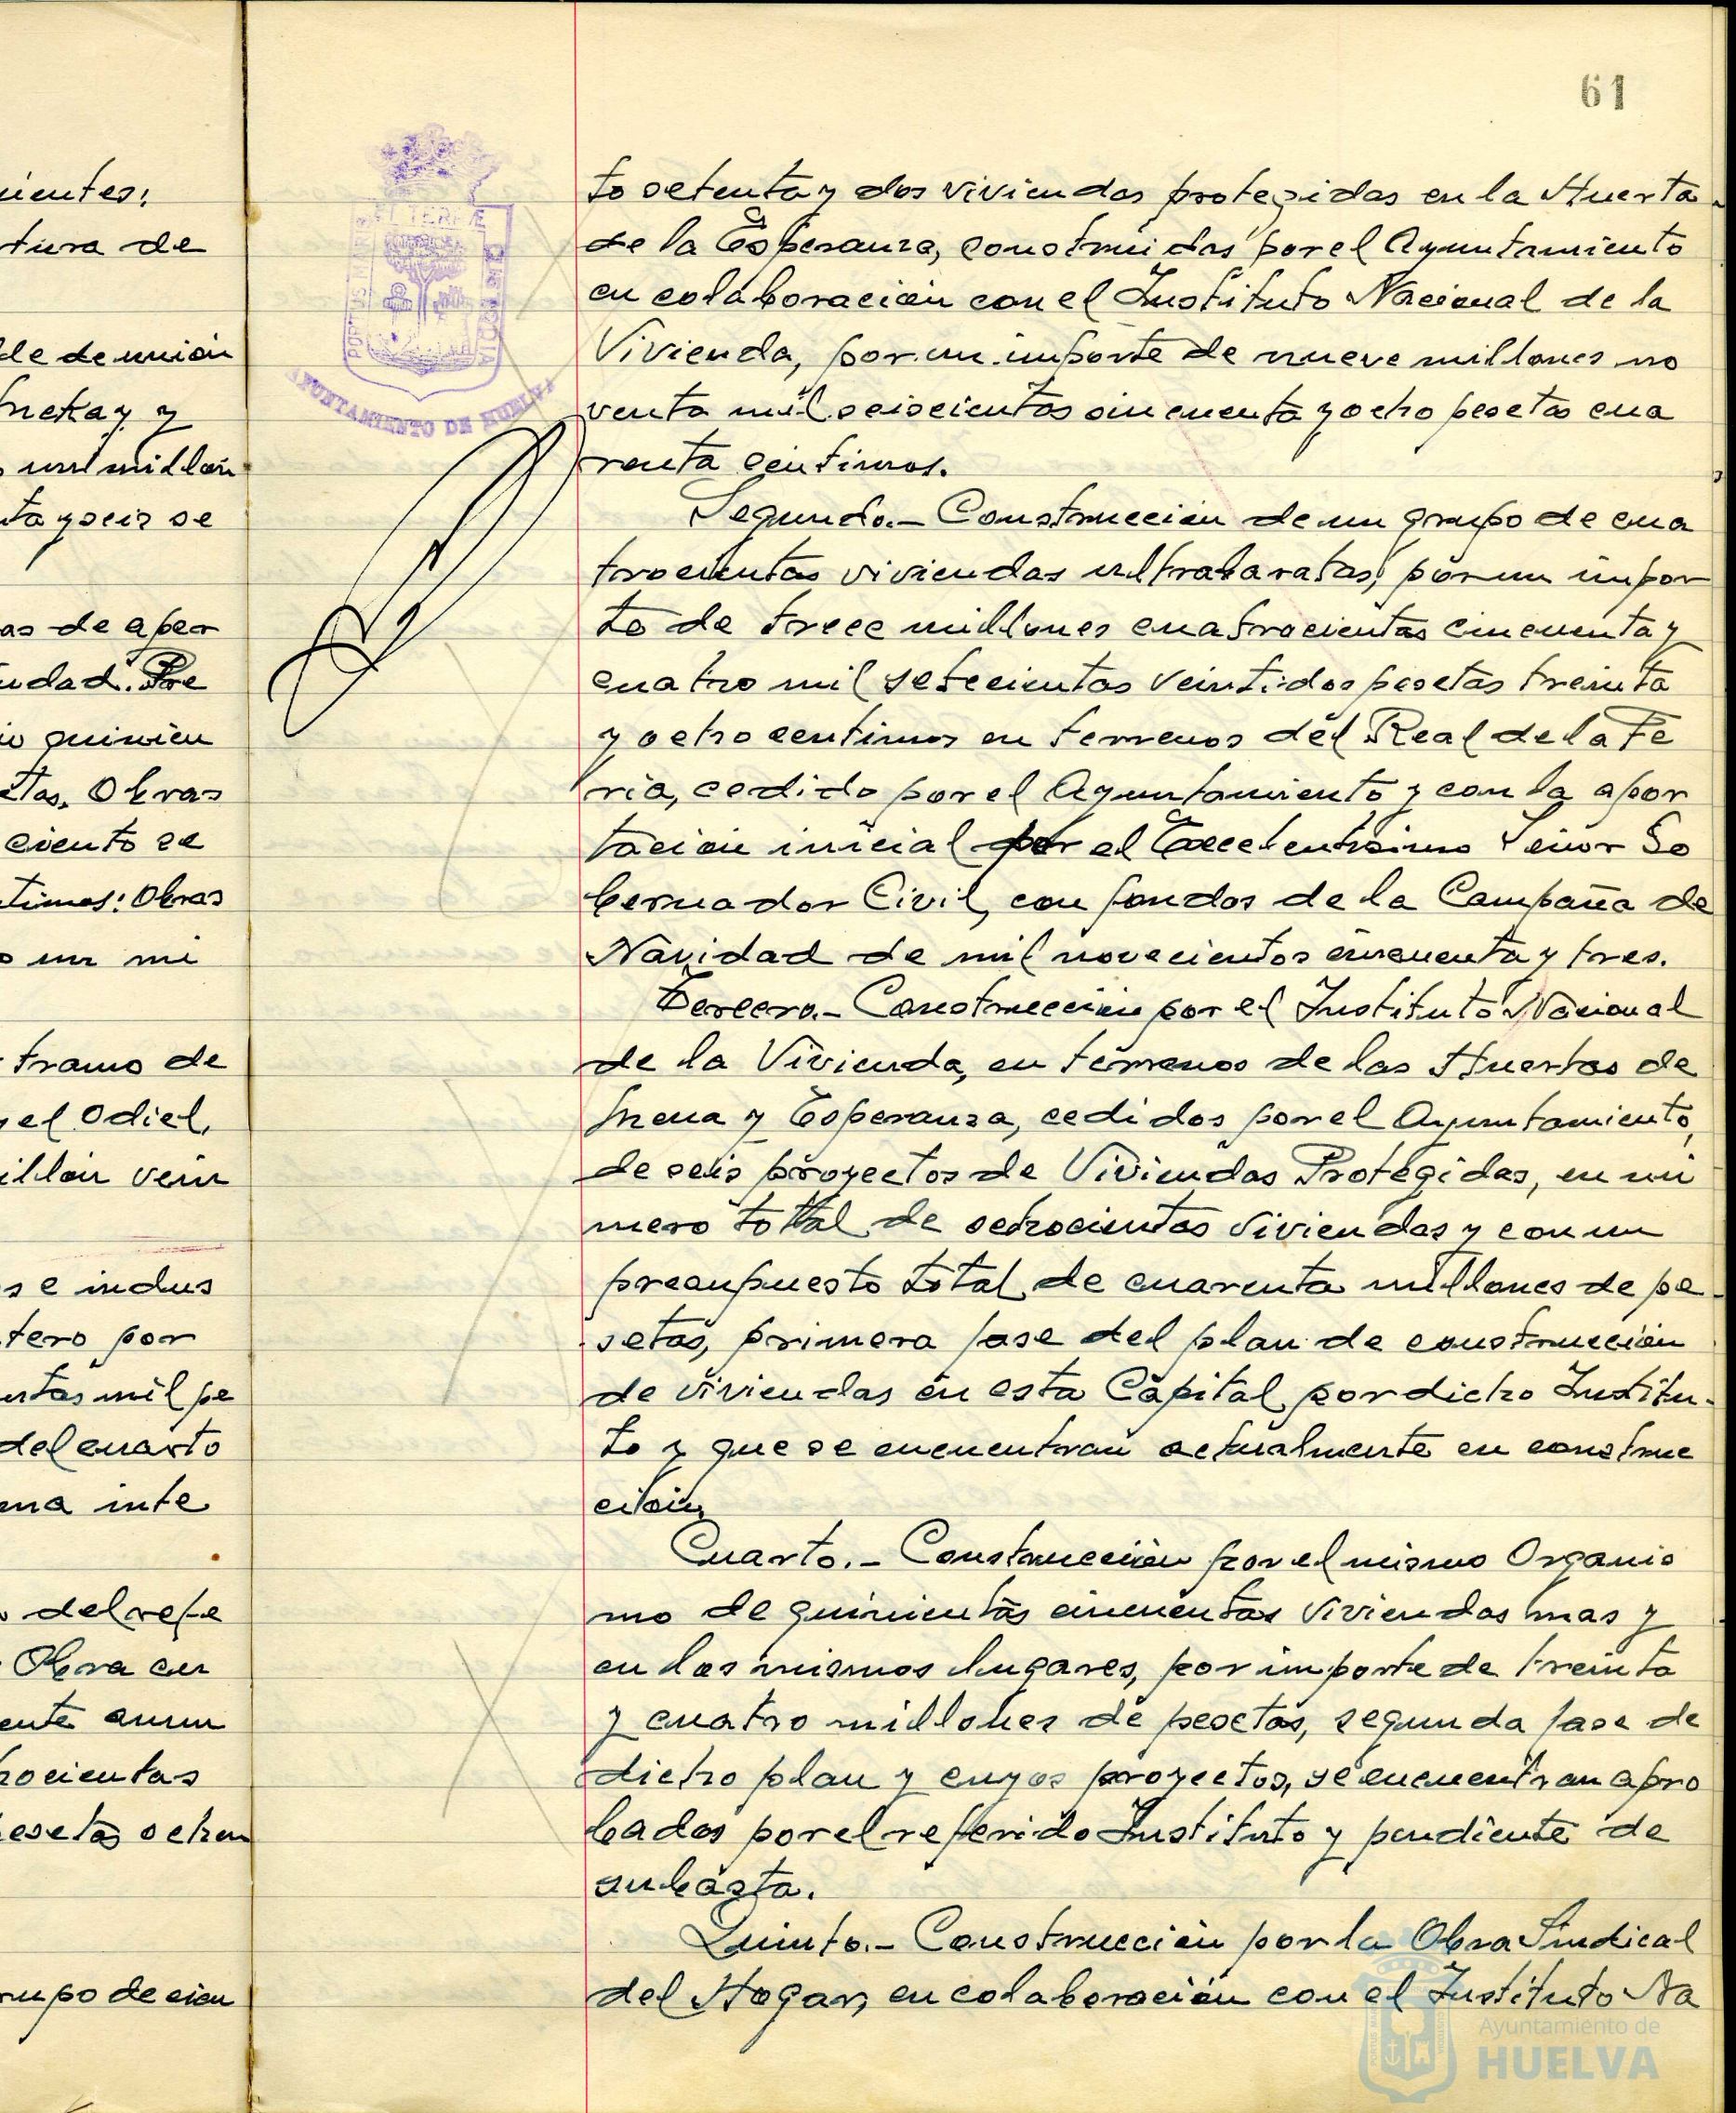 61
uientes:
tura de
de de union
y
un millon
ta y seis se
as de aper
udad. Pre
quinien
tas. Obras
ciento se
timos: Obras
un mi
tramo de
y el Odiel,
illon vein
s e indus
tero por
entas mil pe
del cuarto
una inte
del refe
Obra en
ente anun
rocientas
esetas ochen
rupo de cien
PORTUS MARIS
ET TERRÆ
CUSTODIA
AYUNTAMIENTO DE HUELVA
to setenta y dos viviendas protegidas en la Huerta
de la Esperanza, construidas por el Ayuntamiento
en colaboración con el Instituto Nacional de la
Vivienda, por un importe de nueve millones no
venta mil seiscientas cincuenta y ocho pesetas cua
renta centimos.
Segundo.- Construccion de un grupo de cua
trocientas viviendas ultrabaratas, por un impor
te de trece millones cuatrocientas cincuenta y
cuatro mil setecientas veintidos pesetas treinta
y ocho centimos en terrenos del Real de la Fe
ria, cedido por el Ayuntamiento y con la apor
tacion inicial por el Excelentisimo Señor Go
bernador Civil, con fondos de la Campaña de
Navidad de mil novecientos cincuenta y tres.
Tercero.- Construccion por el Instituto Nacional
de la Vivienda, en terrenos de las Huertas de
Mena y Esperanza, cedidos por el Ayuntamiento,
de seis proyectos de Viviendas Protegidas, en nú
mero total de ochocientas viviendas y con un
presupuesto total de cuarenta millones de pe
setas, primera fase del plan de construcción
de viviendas en esta Capital por dicho Institu-
to y que se encuentran actualmente en construc
cion.
Cuarto.- Construcción por el mismo Organis
mo de quinientas cincuentas viviendas mas y
en los mismos lugares, por importe de treinta
y cuatro millones de pesetas, segunda fase de
dicho plan y cuyos proyectos, se encuentran apro
bados por el referido Instituto y pendiente de
subasta.
Quinto.- Construcción por la Obra Sindical
del Hogar, en colaboración con el Instituto Na
Ayuntamiento de
HUELVA